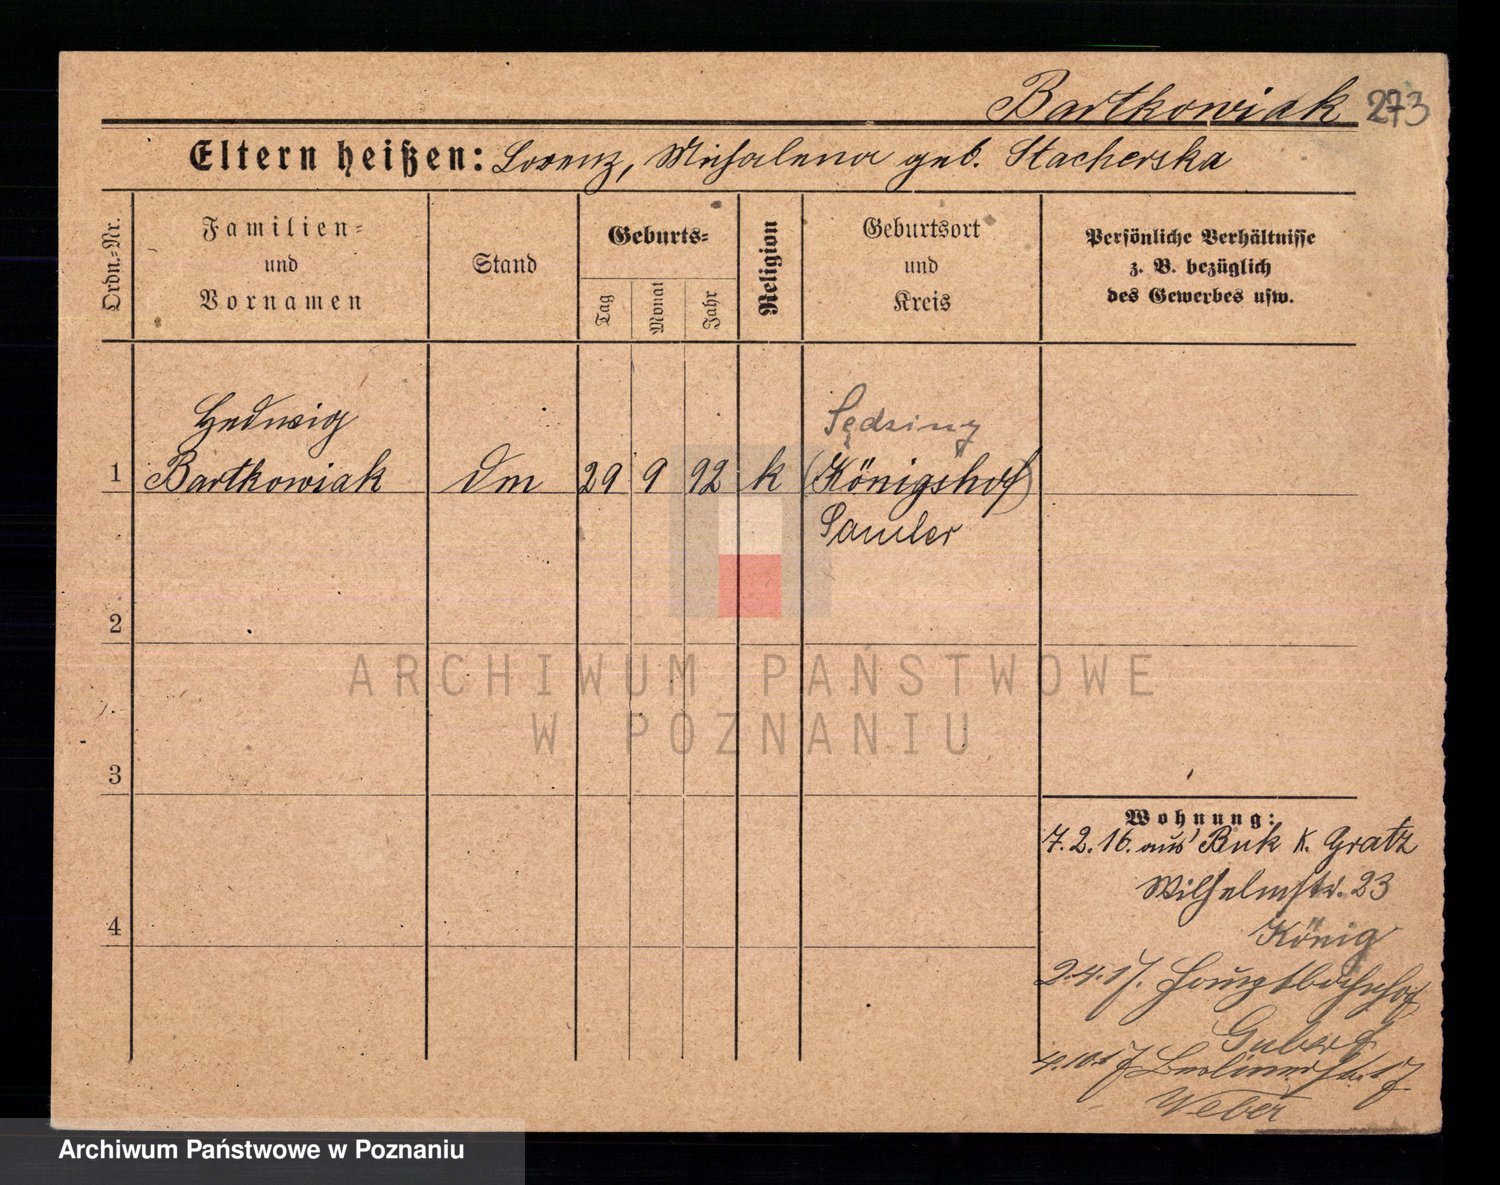 Bartkowiak 273
Eltern heißen: Lorenz, Michalena geb. Stacherska
Ordn.-Nr.
Familien-
und
Vornamen
Stand
Geburts-
Tag
Monat
Jahr
Religion
Geburtsort
und
Kreis
Persönliche Verhältnisse
z. B. bezüglich
des Gewerbes usw.
Hedwig
1 Bartkowiak Dm 29 9 92 k
Sędziny
(Königshof)
Samter
2
3
4
Wohnung:
7.2.16. aus Buk K. Gratz
Wilhelmstr. 23
König
2.4.17. Hauptbahnhof
4.10.17 Berlinerstr. 17
Weber
ARCHIWUM PAŃSTWOWE
W POZNANIU
Archiwum Państwowe w Poznaniu